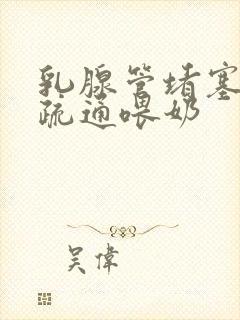 乳腺管堵塞
疏通喂奶
吴偉